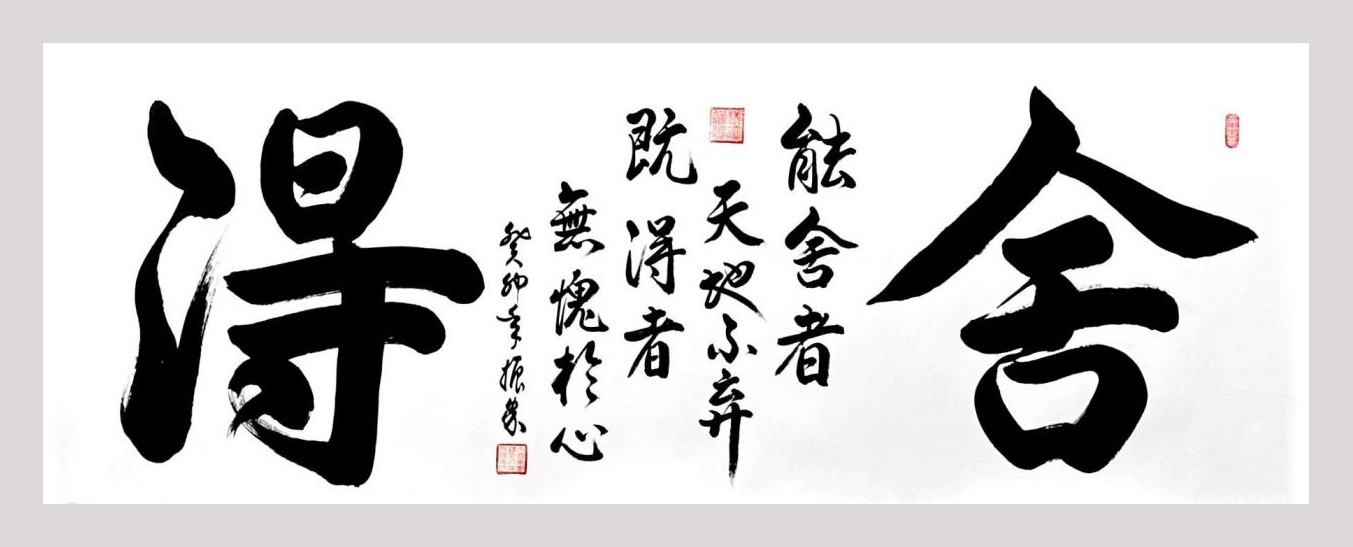 舍
能舍者
天地不弃
既得者
無愧於心
癸卯年振榮
得